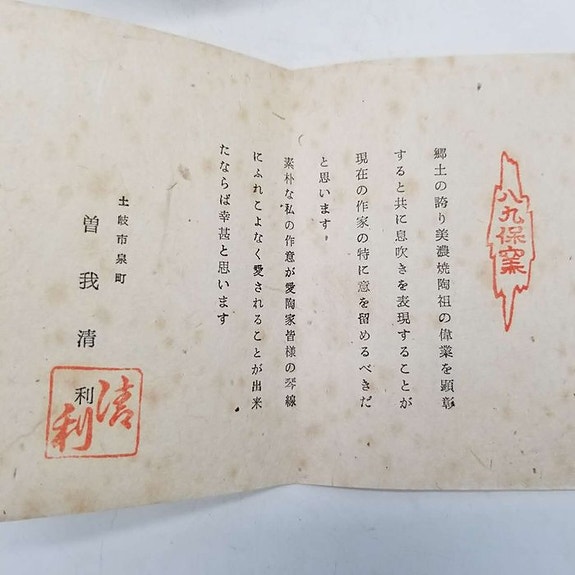 八九保窯
郷土の誇り美濃焼陶祖の偉業を顕彰
すると共に息吹きを表現することが
現在の作家の特に意を留めるべきだ
と思います。
素朴な私の作意が愛陶家皆様の琴線
にふれこよなく愛されることが出来
たならば幸甚と思います
土岐市泉町
曽我清利
清利